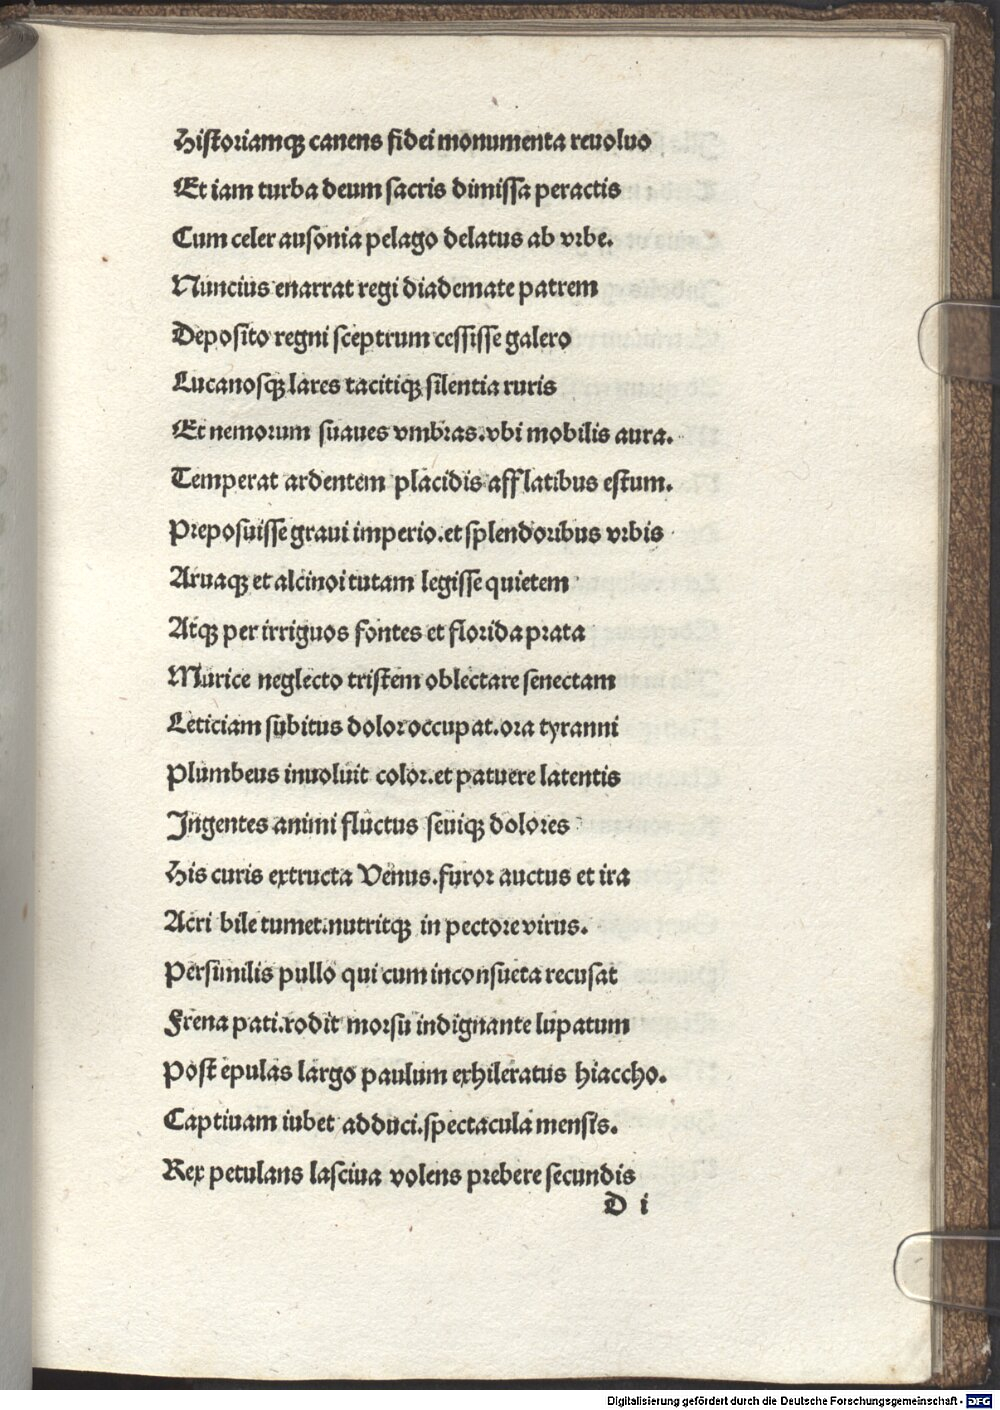 Historiamqꝫ canens fidei monumenta reuoluo
Et iam turba deum sacris dimissa peractis
Cum celer ausonia pelago delatus ab vrbe.
Nuncius enarrat regi diademate patrem
Deposito regni sceptrum cessisse galero
Lucanosqꝫ lares tacitiqꝫ silentia ruris
Et nemorum suaues vmbras.vbi mobilis aura.
Temperat ardentem placidis afflatibus estum.
Preposuisse graui imperio.et splendoribus vrbis
Aruaqꝫ et alcinoi tutam legisse quietem
Atqꝫ per irriguos fontes et florida prata
Murice neglecto tristem oblectare senectam
Leticiam subitus dolor occupat.ora tyranni
Plumbeus inuoluit color.et patuere latentis
Ingentes animi fluctus seuiqꝫ dolores
His curis extructa Venus.furor auctus et ira
Acri bile tumet.nutritqꝫ in pectore virus.
Persimilis pullo qui cum inconsueta recusat
Frena pati.rodit morsu indignante lupatum
Post epulas largo paulum exhileratus hiaccho.
Captiuam iubet adduci.spectacula mensis.
Rex petulans lasciua volens prebere secundis
D i
Digitalisierung gefördert durch die Deutsche Forschungsgemeinschaft - DFG